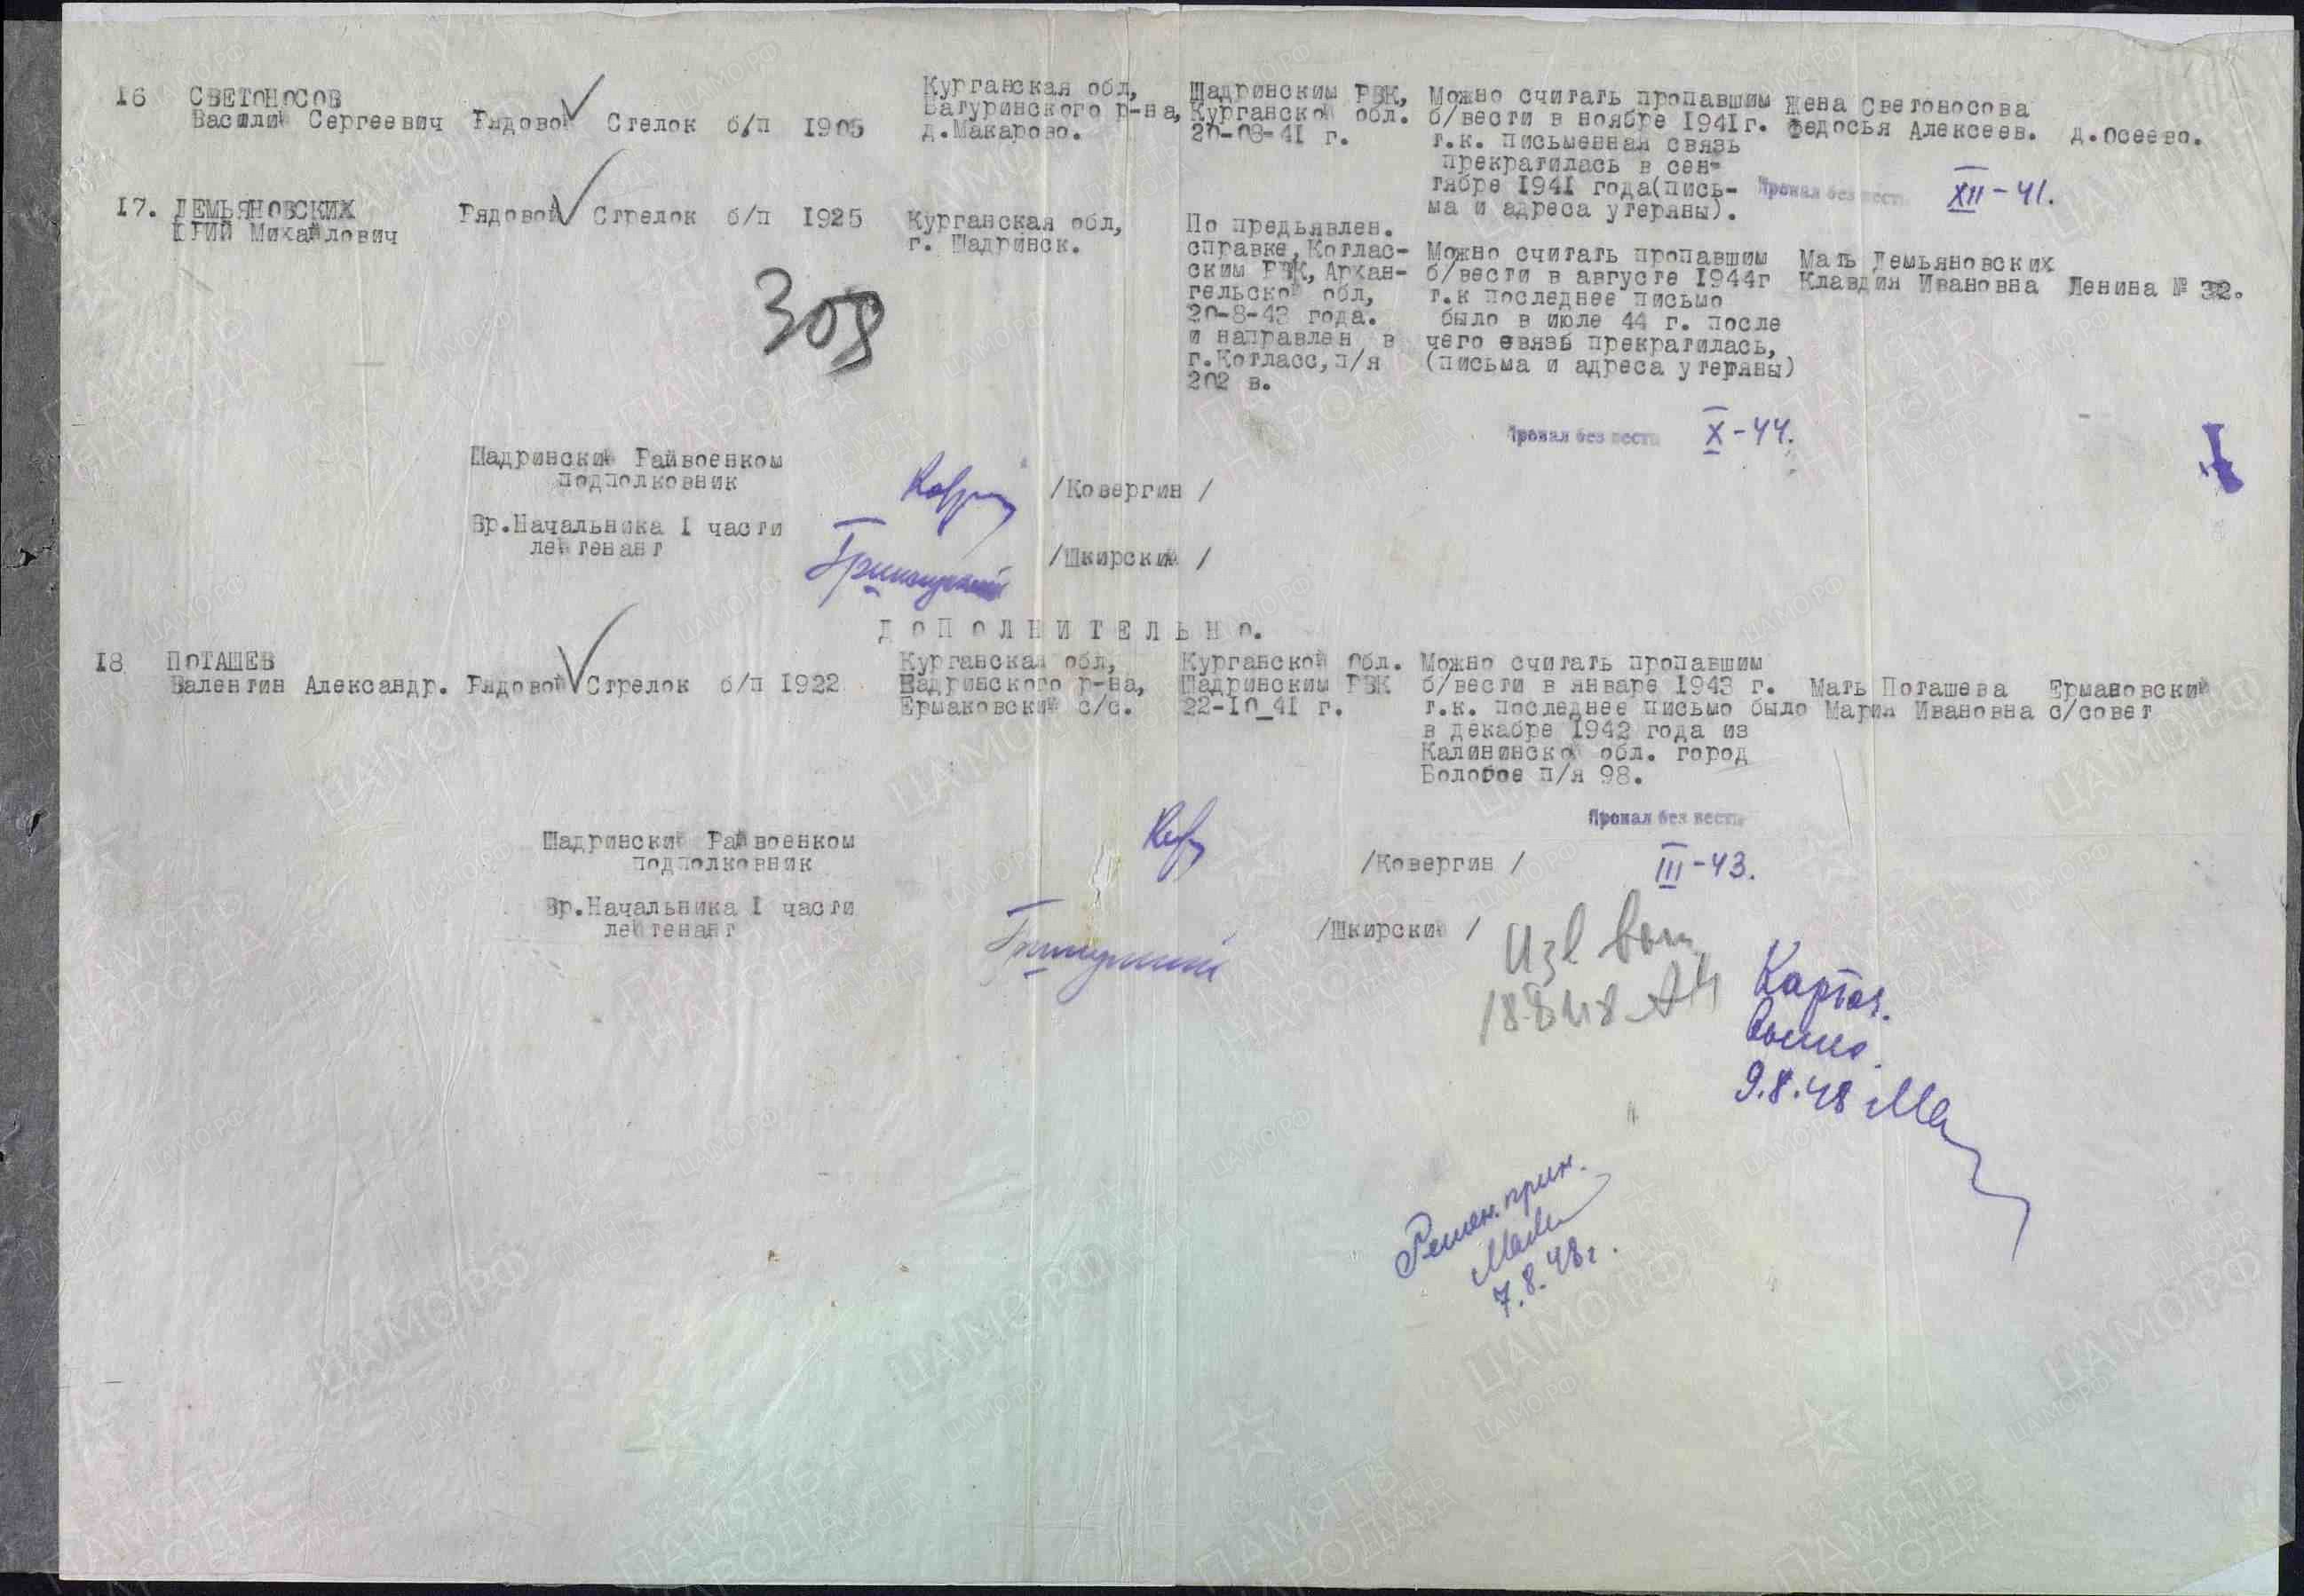 16 СВЕТОНОСОВ
Василий Сергеевич Рядовой Стелок б/п 1905
Курганская обл,
Батуринского р-на,
д.Макарово.
Шадринским РВК,
Курганской обл.
20-08-41 г.
Можно считать пропавшим
б/вести в ноябре 1941г.
т.к. письменная связь
прекратилась в сен-
тябре 1941 года(пись-
ма и адреса утеряны).
Жена Светоносова
Федосья Алексеев. д.Осеево.
Пропал без вести XII-41.
17. ДЕМЬЯНОВСКИХ
ЮРИЙ Михайлович Рядовой Стрелок б/п 1925
Курганская обл,
г. Шадринск.
По предьявлен.
справке,Котлас-
ским РВК, Архан-
гельской обл,
20-8-43 года.
и направлен в
г.Котласс,п/я
202 в.
Можно считать пропавшим
б/вести в августе 1944г
т.к последнее письмо
было в июле 44 г. после
чего связь прекратилась,
(письма и адреса утеряны)
Мать Демьяновских
Клавдия Ивановна Ленина № 32.
308
Пропал без вести X-44.
Шадринский Райвоенком
подполковник /Ковергин /
Вр.Начальника I части
лейтенант /Шкирский /
ДОПОЛНИТЕЛЬНО.
18 ПОТАШЕВ
Валентин Александр. Рядовой Стрелок б/п 1922
Курганская обл,
Шадринского р-на,
Ермаковский с/с.
Курганской Обл.
Шадринским РВК
22-10_41 г.
Можно считать пропавшим
б/вести в январе 1943 г.
т.к. последнее письмо было
в декабре 1942 года из
Калининской обл. город
Бологое п/я 98.
Мать Поташева
Мария Ивановна
Ермаковский
с/совет
Пропал без вести
III-43.
Шадринский Райвоенком
подполковник /Ковергин /
Вр.Начальника I части
лейтенант /Шкирский /
Изв вып
Карточ.
9.8.48
Решен. прин.
7.8.48г.
ЦАМО.РФ
ПАМЯТЬ
НАРОДА